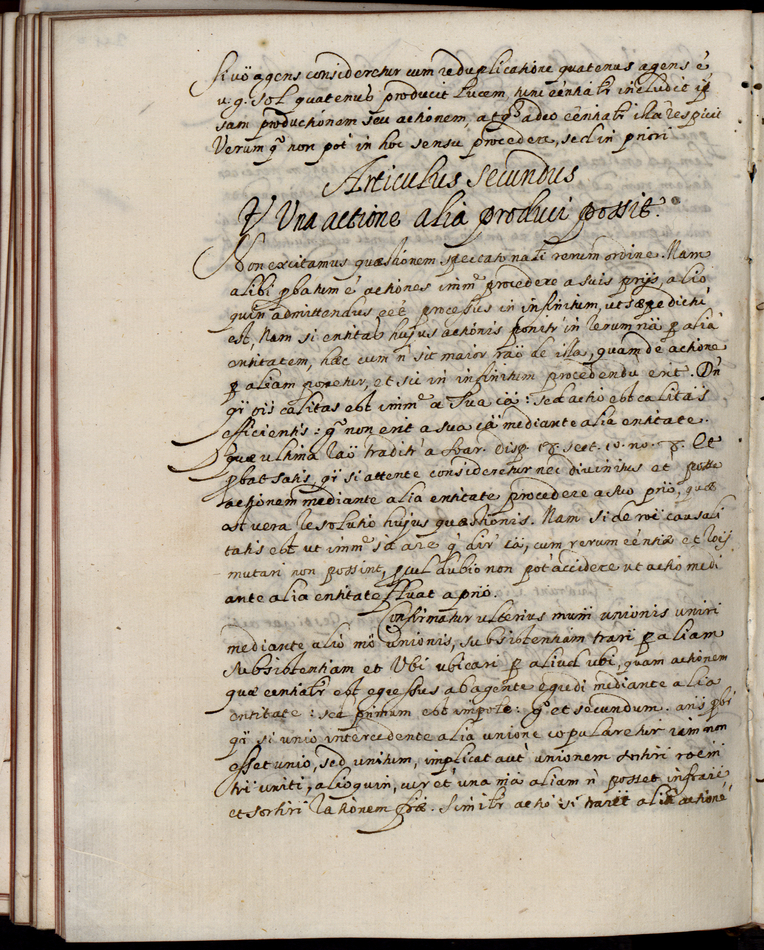 si vo agens consideretur cum reduplicatione quatenus agens é
v. g. Sol quatenus producit lucem tunc eentialr includit ip
sam productionem seu actionem, atq adeo eentialr illa respicit
Verum q non pot in hoc sensu procedere, sed in priori
Articulus secundus
Una actione alia produci possit.
Non excitamus quæstionem spectato nāli rerum ordine. Nam
alibi pbatum é actiones imme procedere a suis prijs, alio
quin admittendus eet processus in infinitum, ut sæpe dictū
est. Nam si entitas hujus actionis ponetr in rerum nā p aliā
entitatem, hæc cum n sit maior rao de illa, quam de actione
p aliam ponetur, et sic in infinitum procedendū erit. Dn
qr ois calitas est imme a sua cā: sed actio est calitas
efficientis: q non erit a sua cā mediante alia entitate.
quæ ultima rao traditr a Soar. Disp. 18 sect. 10. no. 8. Et
pbat satis, qr si attente consideretur nec divinitus et posse
actionem mediante alia entitate procedere a suo prio, quæ
est vera resolutio hujus quæstionis. Nam si de roe causali
tatis est ut imme cum rerum eentiæ et roes
mutari non possint, pcul dubio non pot accidere ut actio medi
ante alia entitate fluat a prio.
Confirmatur ulterius unionis uniri
mediante alio mo unionis, subsistentiam p aliam
subsistentiam et Ubi ubicari p aliud ubi, quam actionem
quæ eentialr est egressus ab agente egredi mediante alia
entitate: sed primum est impole: q et secundum. ans pbr
qr si unio intercedente alia unione copularetur iam non
esset unio, sed unitum, implicat aut unionem sortiri roem
uniti, alioquin, cur et una aliam n posset
et sortiri rationem Similr actio si alia actione